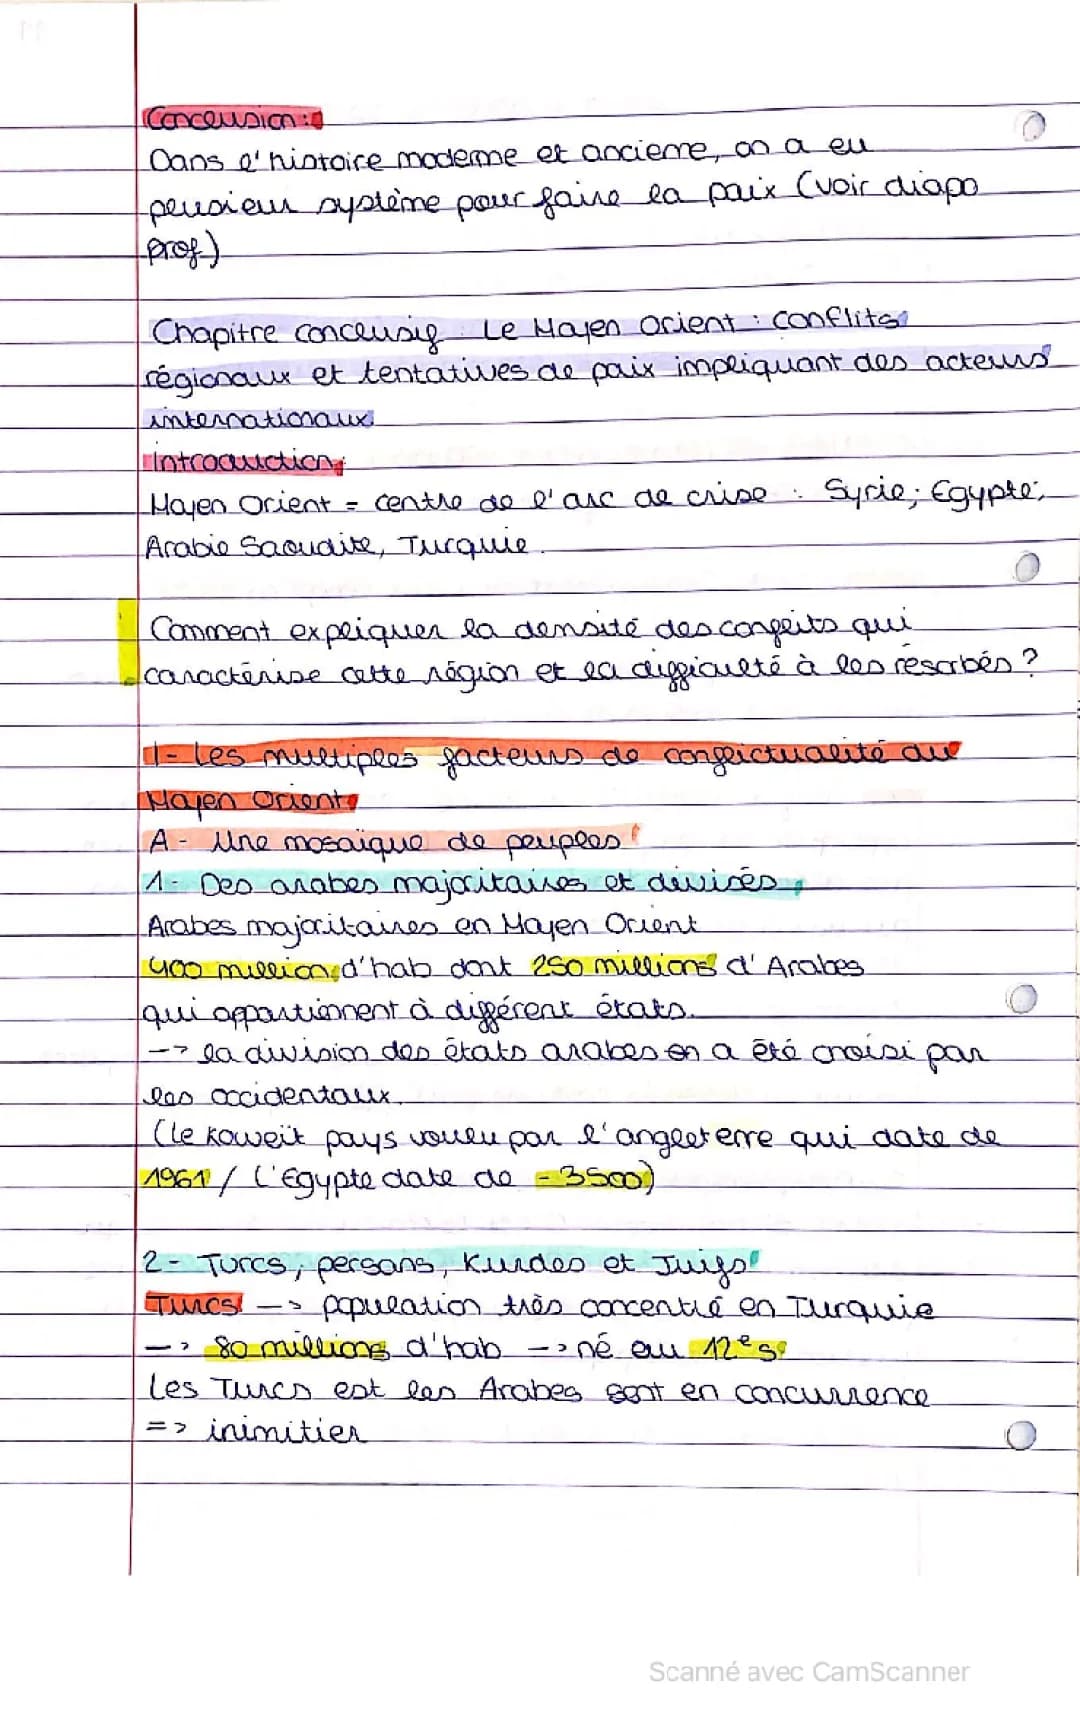 Conclusion :
Dans l'histoire moderne et ancienne, on a eu
plusieur système pour faire la paix (voir diapo
prof.)
Chapitre conclusif : Le Moyen Orient : conflits
régionaux et tentatives de paix impliquant des acteurs
internationaux.
Introduction :
Moyen Orient = centre de l'arc de crise : Syrie, Egypte,
Arabie Saoudite, Turquie.
Comment expliquer la densité des conflits qui
caractérise cette région et la difficulté à les résorbés ?
1- Les multiples facteurs de conflictualité au
Moyen Orient
A - Une mosaïque de peuples
1- Des arabes majoritaires et divisés
Arabes majoritaires en Moyen Orient
400 millions d'hab dont 250 millions d'Arabes
qui appartiennent à différent états.
--> la division des états arabes on a été choisi par
les occidentaux.
(Le Koweït pays voulu par l'angleterre qui date de
1961 / L'Egypte date de - 3500)
2- Turcs, persans, Kurdes et Juifs
Turcs --> population très concentré en Turquie
--> 80 millions d'hab --> né au 12e s
Les Turcs est les Arabes sont en concurrence
=> inimitier
Scanné avec CamScanner